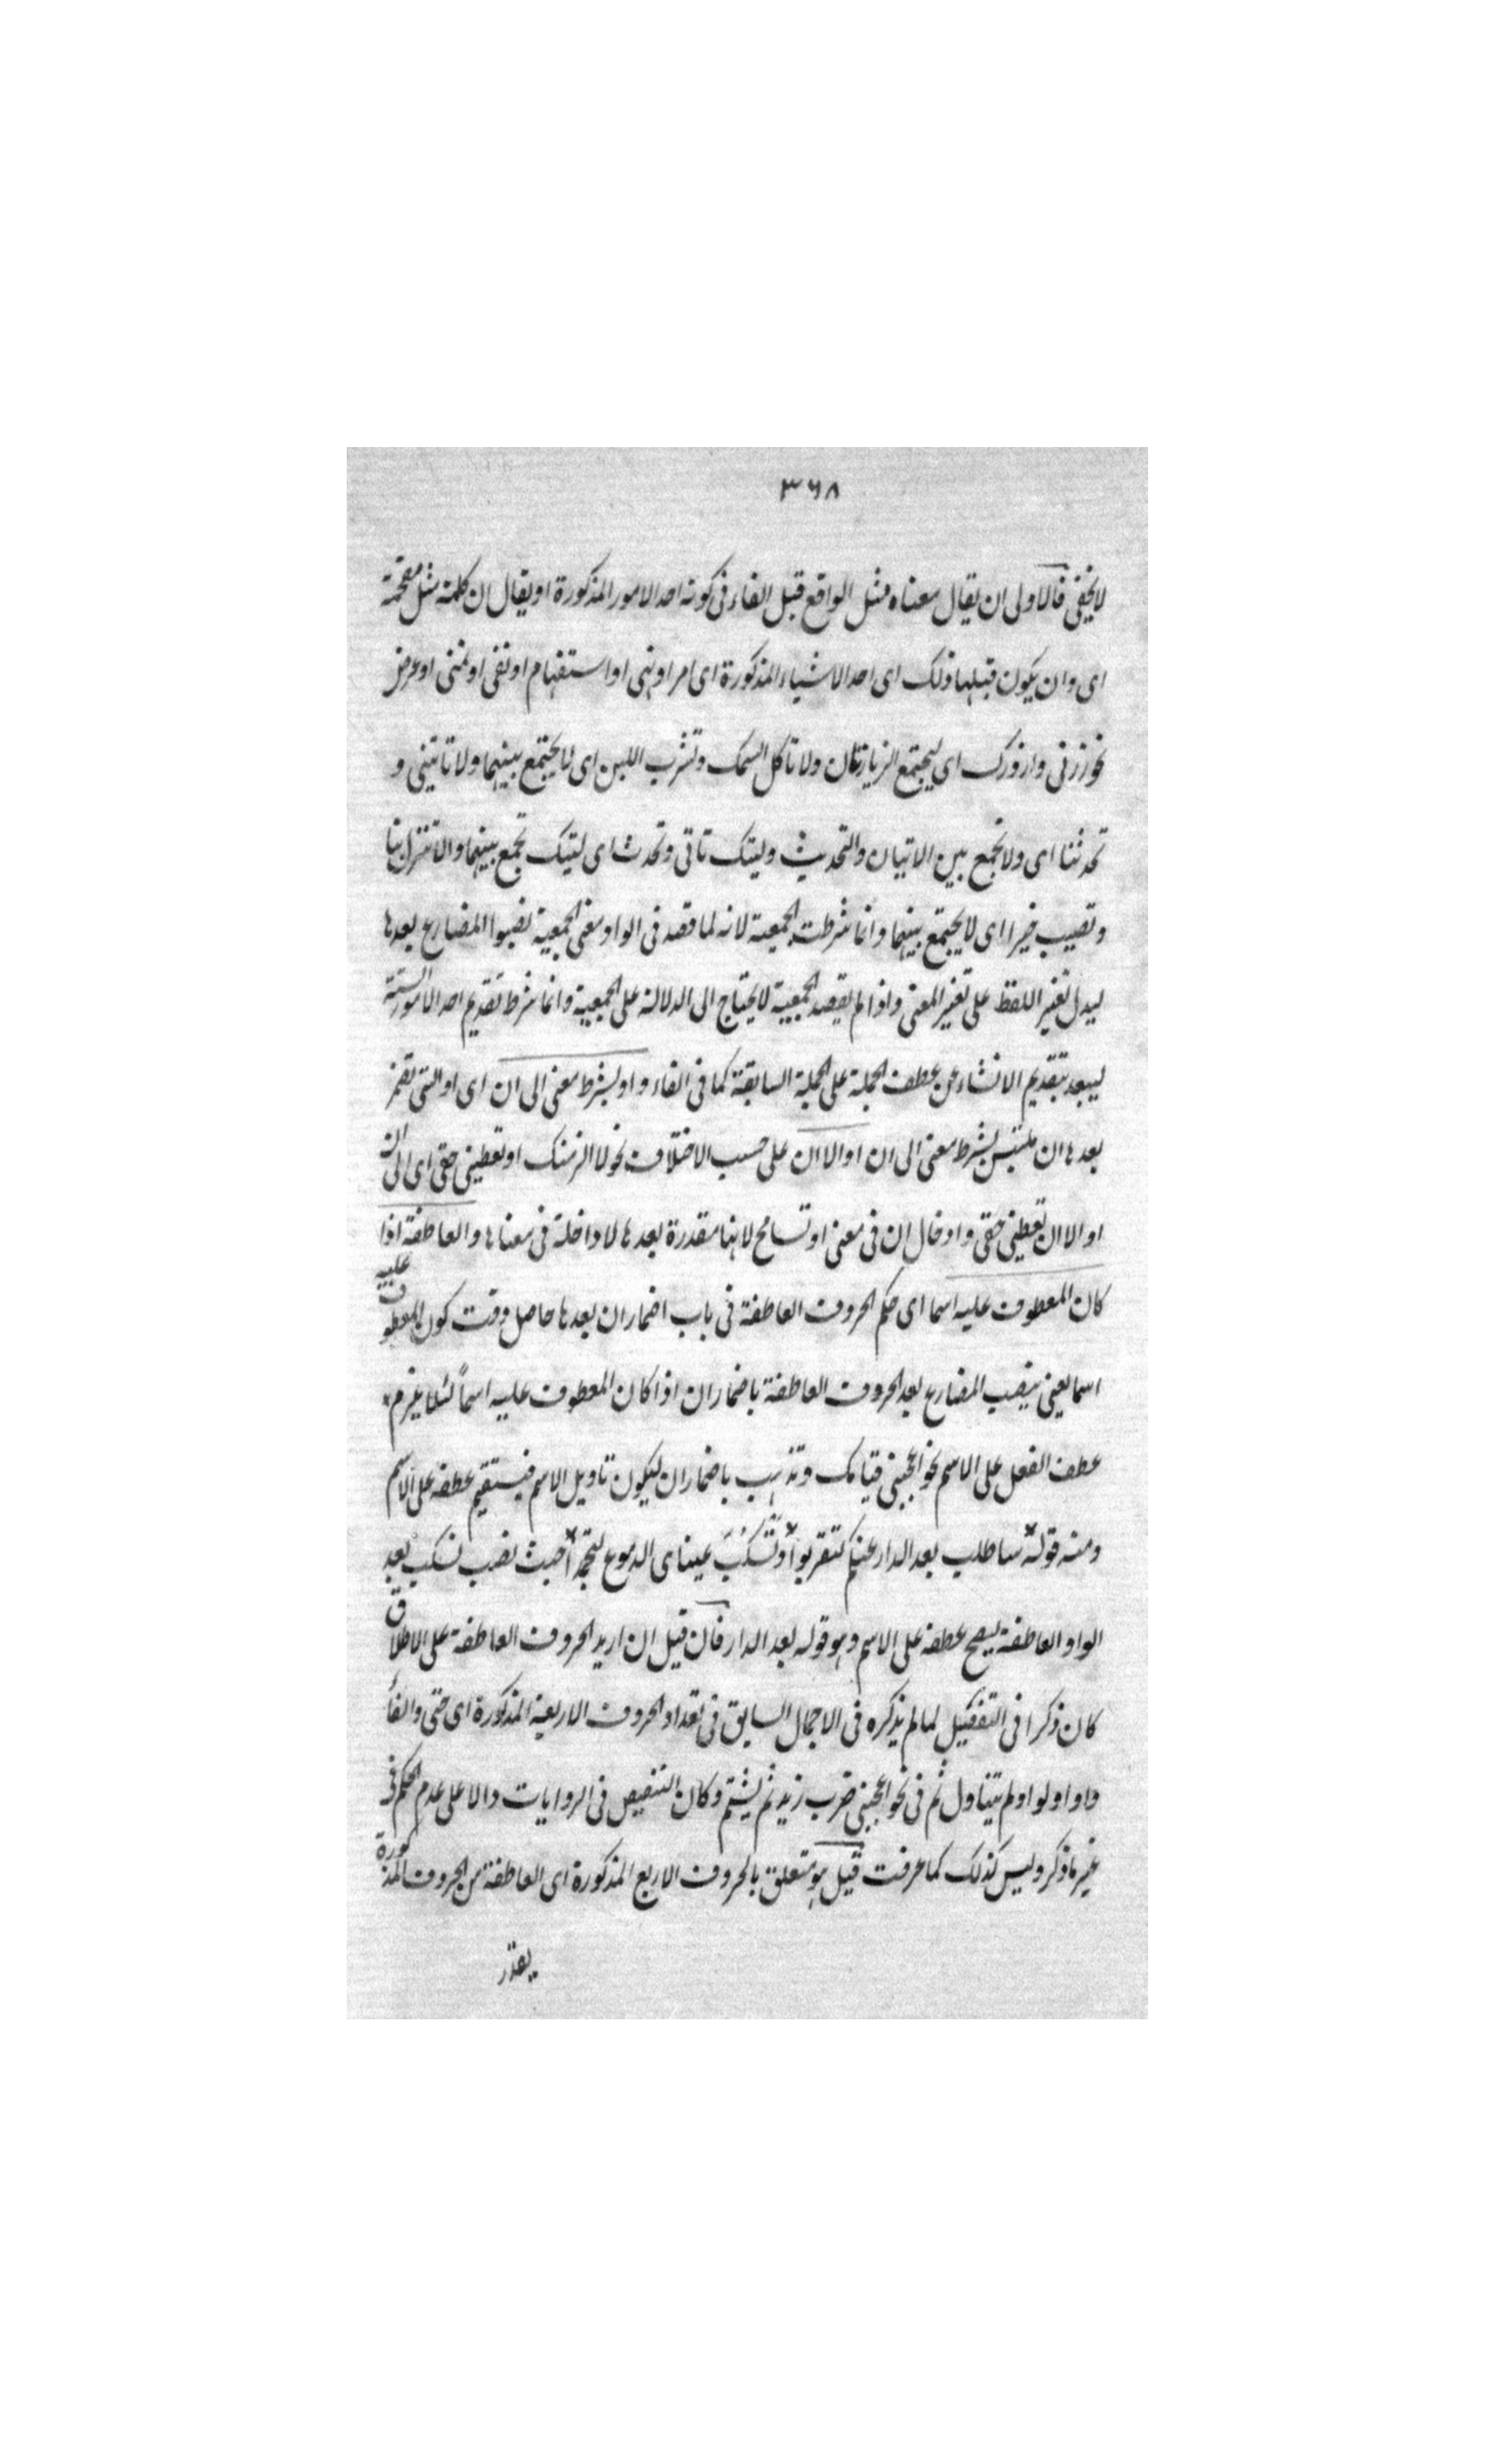 ٣٦٨
لا يخفى فالاولى ان يقال معناه مثل الواقع قبل الفاء فى كونه احد الامور المذكورة او يقال ان كلمة مثل مقحمة
اى وان يكون قبلها ذلك اى احد الاشياء المذكورة اى امر او نهى او استفهام او نفى او تمنى او عرض
نحو زرنى وازورك اى ليجتمع الزيارتان ولا تاكل السمك وتشرب اللبن اى لا يجتمع بينهما ولا تاتينى و
تحدثنا اى ولا تجمع بين الاتيان والتحديث وليتك تاتى وتحدث اى ليتك تجمع بينهما والا تنزل بنا
وتصيب خيرا اى لا يجتمع بينهما وانما شرطت الجمعية لانه لما قصد فى الواو معنى الجمعية نصبوا المضارع بعدها
ليدل تغير اللفظ على تغير المعنى واذا لم يقصد الجمعية لا يحتاج الى الدلالة على الجمعية وانما شرط تقديم احد الامور الستة
ليبعد بتقديم الانشاء عن عطف الجملة على الجملة السابقة كما فى الفاء واو بشرط معنى الى ان اى او التى تضمر
بعدها ان ملتبس بشرط معنى الى ان او الا ان على حسب الاختلاف نحو لالزمنك او تعطينى حقى اى الى ان
او الا ان تعطينى حقى وادخال ان فى معنى او تسامح لانها مقدرة بعدها لا داخلة فى معناها والعاطفة اذا
كان المعطوف عليه اسما اى حكم الحروف العاطفة فى باب اضمار ان بعدها حاصل وقت كون المعطوف عليه
اسما يعنى ينصب المضارع بعد الحروف العاطفة باضمار ان اذا كان المعطوف عليه اسماً لئلا يلزم
عطف الفعل على الاسم نحو اعجبنى قيامك وتذهب باضمار ان ليكون تاويل الاسم فيستقيم عطفه على الاسم
ومنه قوله ساطلب بعد الدار عنكم لتقربوا وتَسْكُبَ عيناى الدموع لتجمدا حيث نصب تسكب بعد
الواو العاطفة ليصح عطفه على الاسم وهو قوله بعد الدار فان قيل ان اريد الحروف العاطفة على الاطلاق
كان ذكرا فى التفصيل لما لم يذكره فى الاجمال السابق فى تعداد الحروف الاربعة المذكورة اى حتى والفاء
واو او لو او لم يتناول ثم فى نحو اعجبنى ضرب زيد ثم يشتم وكان التنصيص فى الروايات دالا على عدم الحكم فى
غير ما ذكر وليس كذلك كما عرفت قيل هو متعلق بالحروف الاربع المذكورة اى العاطفة من الحروف المذكورة
يقدر